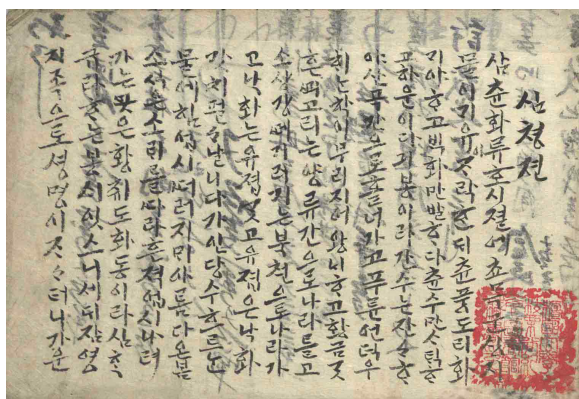 심쳥젼
삼츈화류호시졀에 쵸목군싱지
물이 기유이ᄌᆞ락ᄒᆞᆫ듸 츈풍도리화
긔야ᄒᆞ고 ᄇᆡᆨ화만발ᄒᆞ다 츈수만ᄉᆞᄐᆡᆨᄒᆞ
고 하운이다긔봉이라 간수는 잔々ᄒᆞ
야 산곡간으로 흘너가고 푸른 언덕 우
희는 학이 무리지어 왕ᄂᆡᄒᆞ고 황금ᄀᆞᆺ
흔 ᄭᅬᄭᅩ리는 양류간으로 나라들고
소상강 ᄯᅦ기러기는 북쳔으로 나라가
고 낙화는 유졉ᄀᆞᆺ고 유졉은 낙화
ᄀᆞᆺ치 펄펄 날니다가 인당수 흐르는
물에 힘업시 ᄯᅥ러지ᄆᆡ 아름다온 봄
소식은 소ᄅᆡ를 ᄯᅡ라 흔젹 업시 나려
가는 곳은 황쥬 도화동이라 심학
규라 ᄒᆞ는 봉사 잇스니 세ᄃᆡ 잠영
지족으로 셩명이 ᄌᆞ々터니 가운